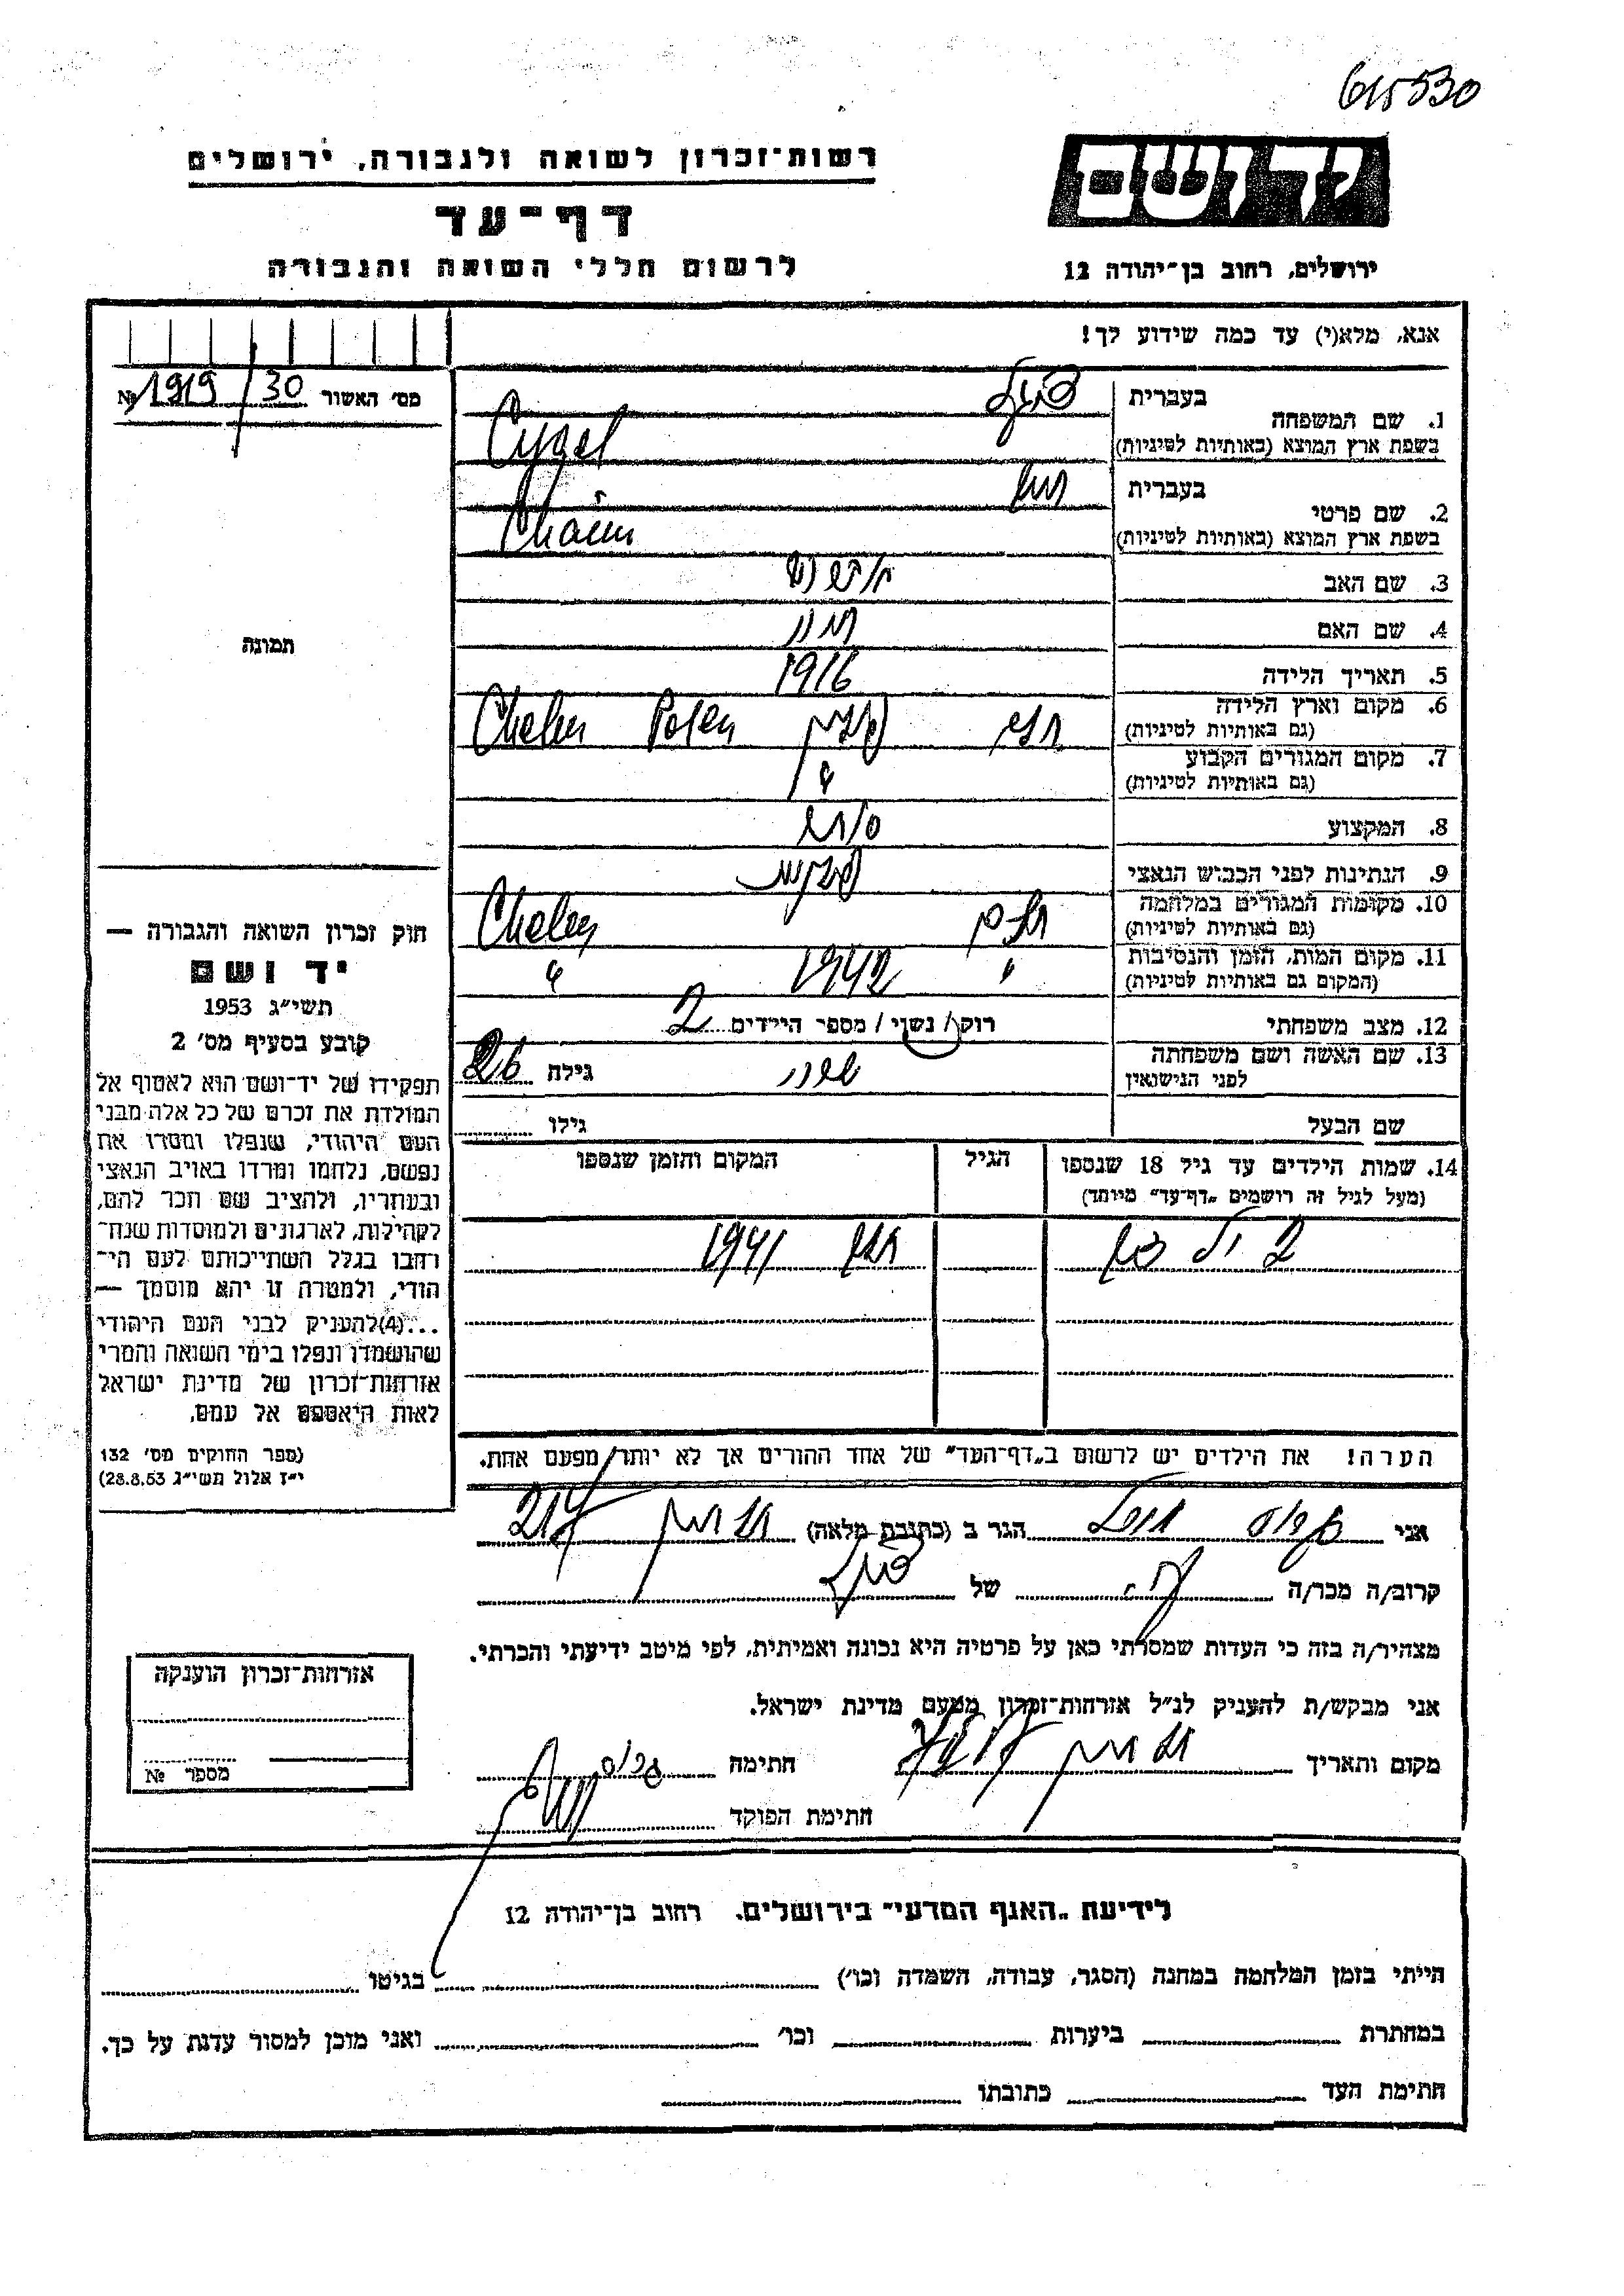 615530
יד ושם
רשות־זכרון לשואה ולגבורה, ירושלים
דף־עד
לרשום חללי השואה והגבורה
ירושלים, רחוב בן־יהודה 12
אנא, מלא(י) עד כמה שידוע לך!
מס' האשור 30 / 1919 №
תמונה
חוק זכרון השואה והגבורה —
יד ושם
תשי"ג 1953
קובע בסעיף מס' 2
תפקידו של יד־ושם הוא לאסוף אל
המולדת את זכרם של כל אלה מבני
העם היהודי, שנפלו ומסרו את
נפשם, נלחמו ומרדו באויב הנאצי
ובעוזריו, ולהציב שם וזכר להם,
לקהילות, לארגונים ולמוסדות שנח־
רבו בגלל השתייכותם לעם הי־
הודי, ולמטרה זו יהא מוסמך —
...(4)להעניק לבני העם היהודי
שהושמדו ונפלו בימי השואה והמרי
אזרחות־זכרון של מדינת ישראל
לאות היאספם אל עמם.
(ספר החוקים מס' 132
י"ז אלול תשי"ג 28.8.53)
1. שם המשפחה
בעברית ציגל
בשפת ארץ המוצא (באותיות לטיניות) Cygel
2. שם פרטי
בעברית חיים
בשפת ארץ המוצא (באותיות לטיניות) Chaim
3. שם האב
4. שם האם
5. תאריך הלידה 1916
6. מקום וארץ הלידה
(גם באותיות לטיניות) חלם פולין Polen Chelm
7. מקום המגורים הקבוע
(גם באותיות לטיניות) "
8. המקצוע סוחר
9. הנתינות לפני הכבוש הנאצי פולנית
10. מקומות המגורים במלחמה
(גם באותיות לטיניות) חלם Chelm
11. מקום המות, הזמן והנסיבות
(המקום גם באותיות לטיניות) " 1942 "
12. מצב משפחתי רווק / נשוי / מספר הילדים 2
13. שם האשה ושם משפחתה
לפני הנישואין גילה 26
שם הבעל גילו
14. שמות הילדים עד גיל 18 שנספו הגיל המקום והזמן שנספו
(מעל לגיל זה רושמים "דף־עד" מיוחד)
2 ילדים חלם 1941
הערה! את הילדים יש לרשום ב"דף־העד" של אחד ההורים אך לא יותר מפעם אחת.
אני הגר ב (כתובת מלאה)
קרוב/ה מכר/ה של
מצהיר/ה בזה כי העדות שמסרתי כאן על פרטיה היא נכונה ואמיתית, לפי מיטב ידיעתי והכרתי.
אני מבקש/ת להעניק לנ"ל אזרחות־זכרון מטעם מדינת ישראל.
מקום ותאריך חתימה
חתימת הפוקד
אזרחות־זכרון הוענקה
מספר №
לידיעת "האגף המדעי" בירושלים, רחוב בן־יהודה 12
הייתי בזמן המלחמה במחנה (הסגר, עבודה, השמדה וכו') בגיטו
במחתרת ביערות וכו' ואני מוכן למסור עדות על כך.
חתימת העד כתובתו